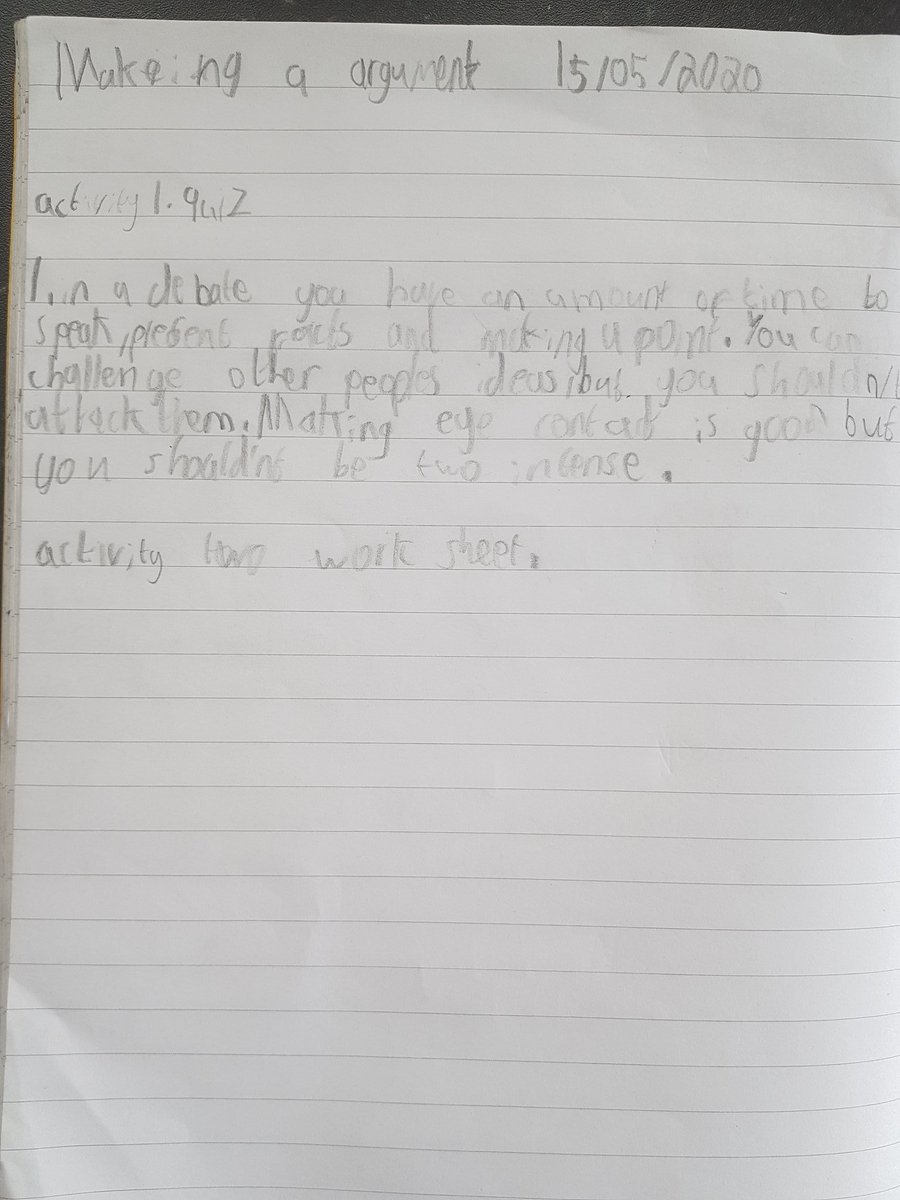 Makeing a argument 15/05/2020
activity 1. quiz
1. in a debate you have an amount of time to
speak, present facts and making a point. You can
challenge other peoples ideas, but you should n't
attack them. Making eye contact is good but
you should'nt be two intense.
activity two work sheet.